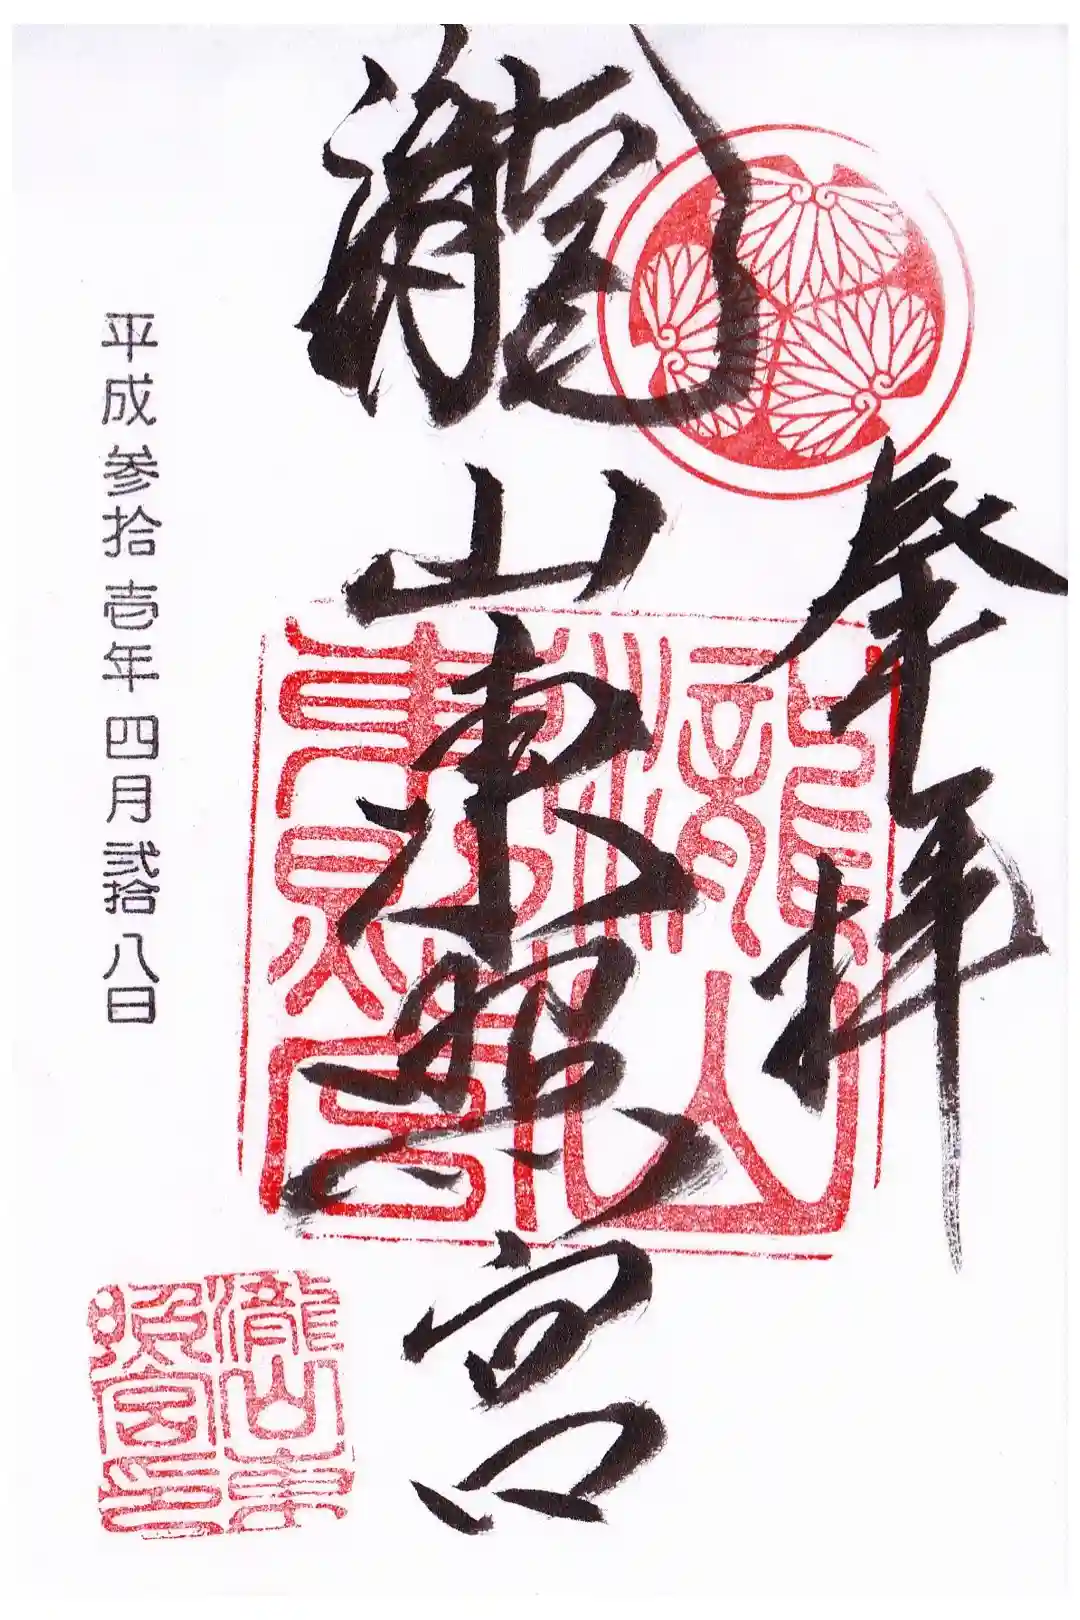 奉拝
瀧山東照宮
平成参拾壱年四月弐拾八日
瀧山東
照宮印